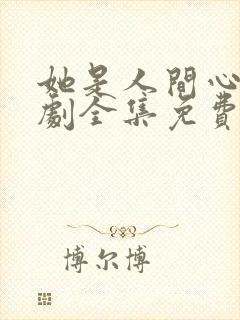 她是人間心
劇全集免費
博尔博